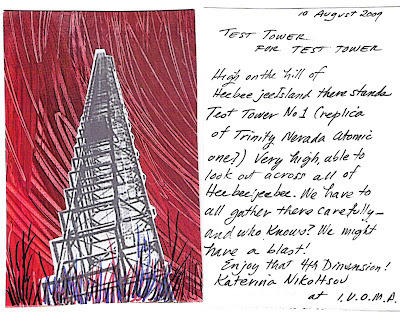 10 August 2009
TEST TOWER
FOR TEST TOWER
High on the hill of
Heebee jeeIsland there stands
Test Tower No 1 (replica
of Trinity Nevada atomic
one?) Very high, able to
look out across all of
Heebeejeebee. We have to
all gather there carefully—
and who knows? We might
have a blast!
Enjoy that 4th Dimension!
Katerina Nikoltsou
at I.U.O.M.A.